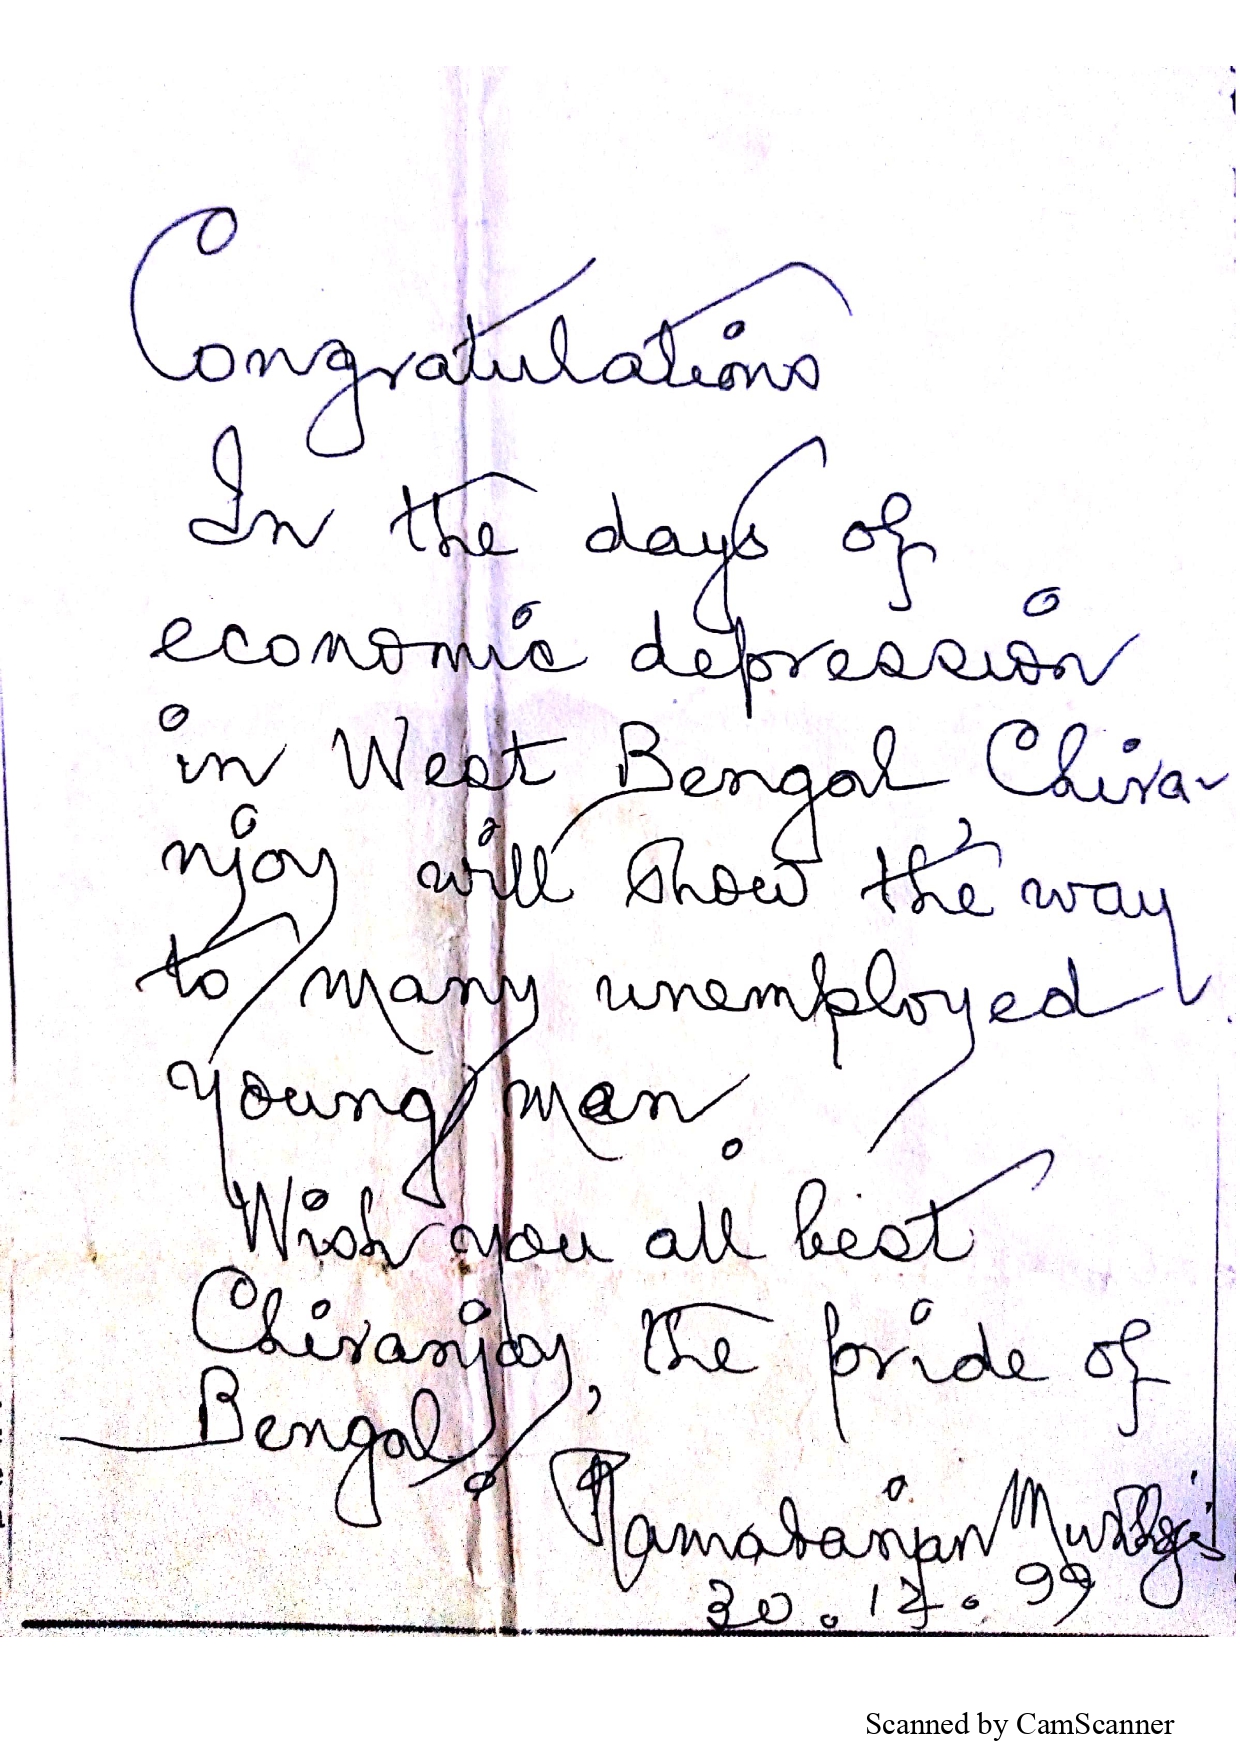 Congratulations
In the days of
economic depression
in West Bengal, Chira-
njoy will show the way
to many unemployed
young men.
Wish you all best
Chiranjoy, the pride of
Bengal.
30.12.99
Scanned by CamScanner